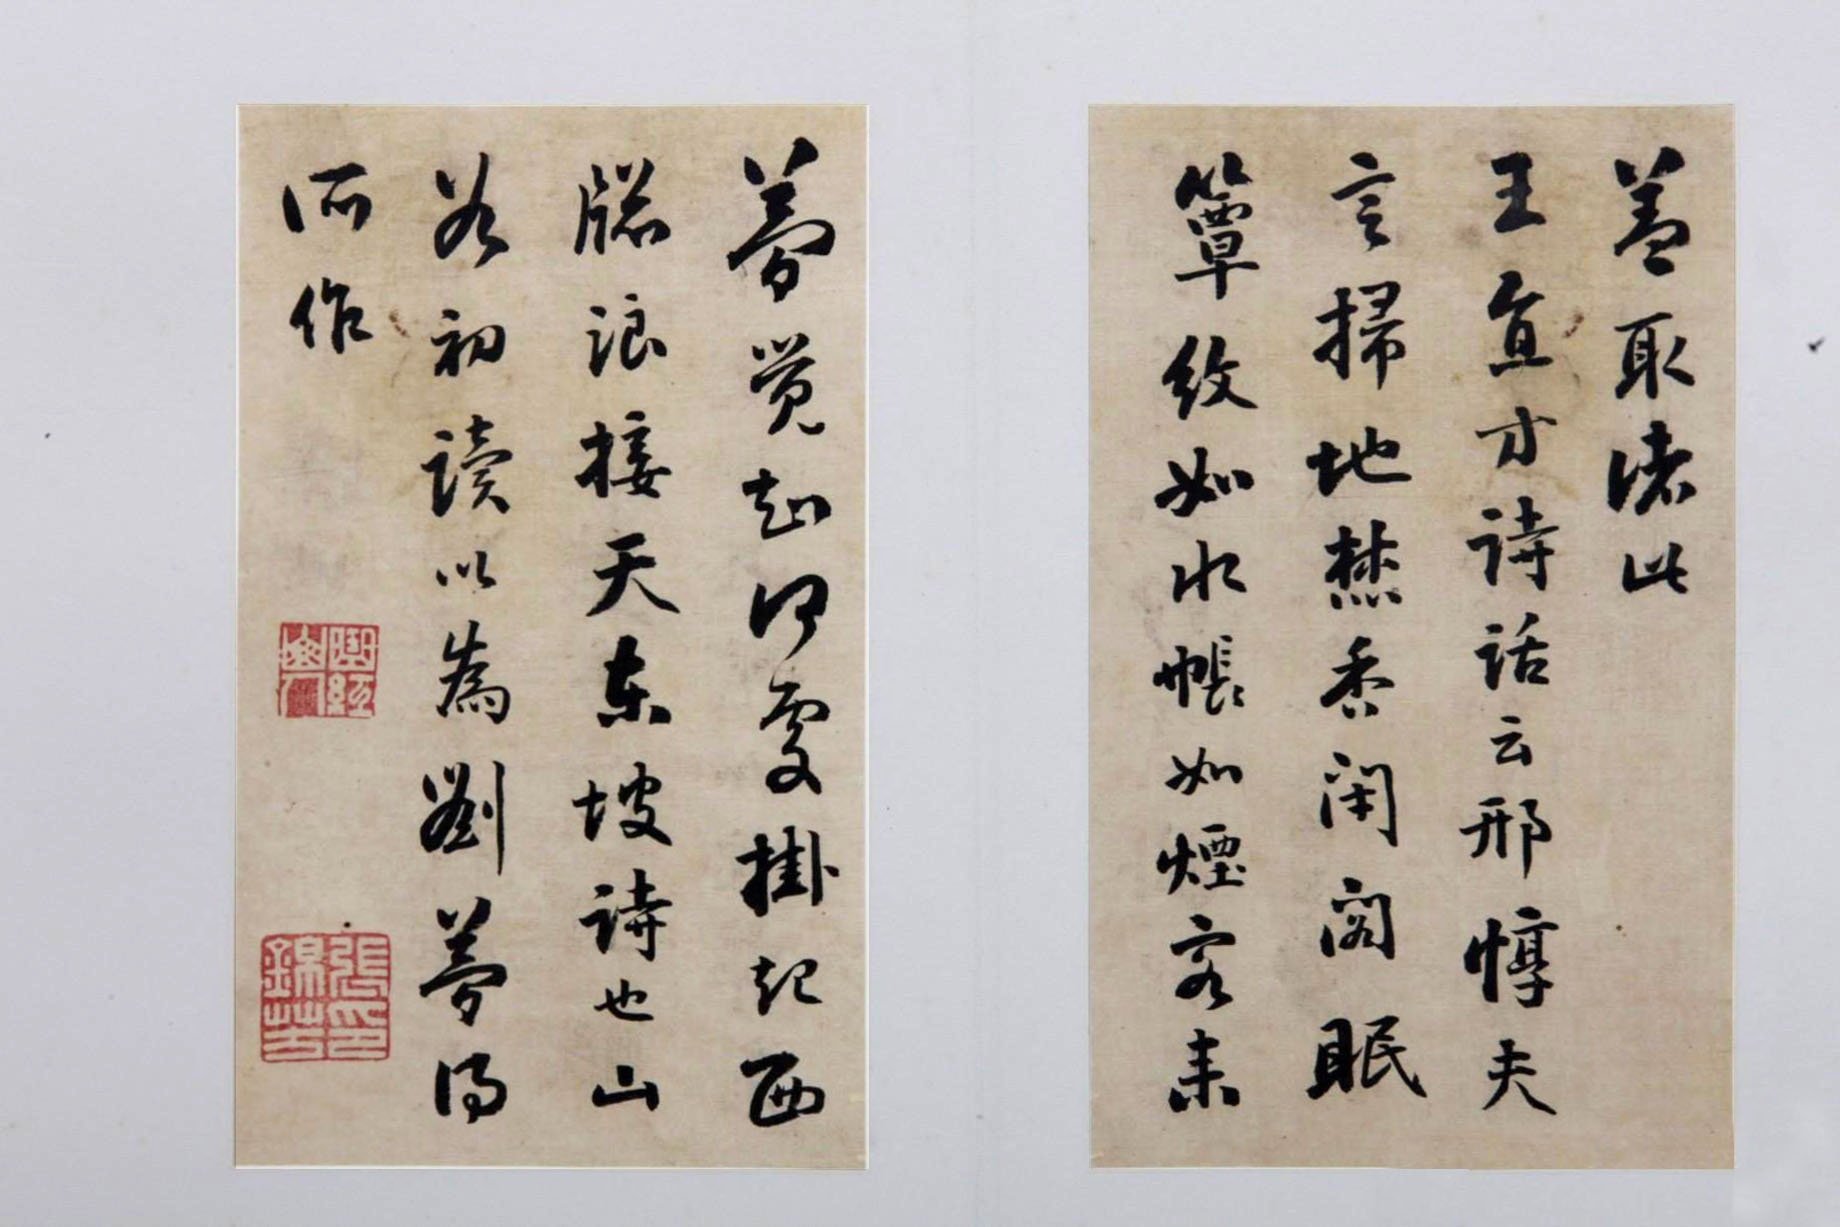 蓋取諸此
王直方詩話云邢惇夫
言掃地焚香閉閣眠
簟紋如水帳如煙客來
夢覺知何處掛起西
牕浪接天東坡詩也山
谷初讀以為劉夢得
所作
張錦芳印